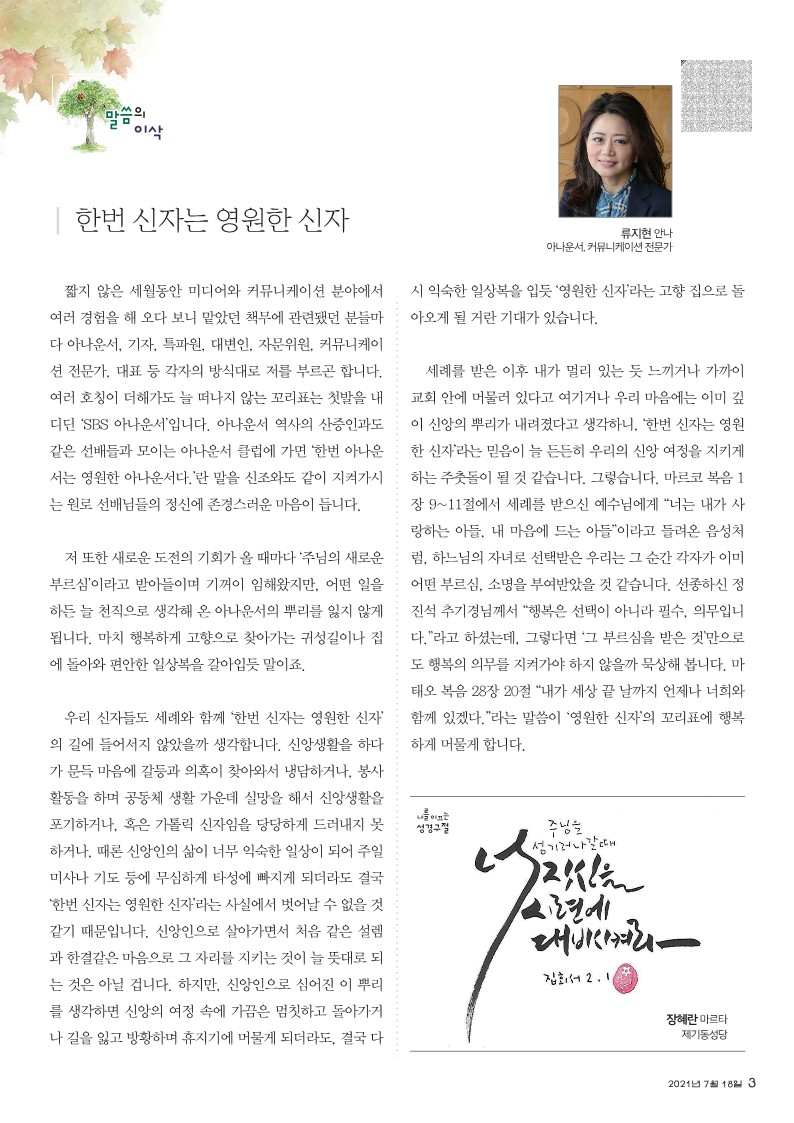 말씀의
이삭
한번 신자는 영원한 신자
류지현 안나
아나운서, 커뮤니케이션 전문가
짧지 않은 세월동안 미디어와 커뮤니케이션 분야에서
여러 경험을 해 오다 보니 맡았던 책무에 관련됐던 분들마
다 아나운서, 기자, 특파원, 대변인, 자문위원, 커뮤니케이
션 전문가, 대표 등 각자의 방식대로 저를 부르곤 합니다.
여러 호칭이 더해가도 늘 떠나지 않는 꼬리표는 첫발을 내
디딘 ‘SBS 아나운서’입니다. 아나운서 역사의 산증인과도
같은 선배들과 모이는 아나운서 클럽에 가면 ‘한번 아나운
서는 영원한 아나운서다.’란 말을 신조와도 같이 지켜가시
는 원로 선배님들의 정신에 존경스러운 마음이 듭니다.
저 또한 새로운 도전의 기회가 올 때마다 ‘주님의 새로운
부르심’이라고 받아들이며 기꺼이 임해왔지만, 어떤 일을
하든 늘 천직으로 생각해 온 아나운서의 뿌리를 잃지 않게
됩니다. 마치 행복하게 고향으로 찾아가는 귀성길이나 집
에 돌아와 편안한 일상복을 갈아입듯 말이죠.
우리 신자들도 세례와 함께 ‘한번 신자는 영원한 신자’
의 길에 들어서지 않았을까 생각합니다. 신앙생활을 하다
가 문득 마음에 갈등과 의혹이 찾아와서 냉담하거나, 봉사
활동을 하며 공동체 생활 가운데 실망을 해서 신앙생활을
포기하거나, 혹은 가톨릭 신자임을 당당하게 드러내지 못
하거나, 때론 신앙인의 삶이 너무 익숙한 일상이 되어 주일
미사나 기도 등에 무심하게 타성에 빠지게 되더라도 결국
‘한번 신자는 영원한 신자’라는 사실에서 벗어날 수 없을 것
같기 때문입니다. 신앙인으로 살아가면서 처음 같은 설렘
과 한결같은 마음으로 그 자리를 지키는 것이 늘 뜻대로 되
는 것은 아닐 겁니다. 하지만, 신앙인으로 심어진 이 뿌리
를 생각하면 신앙의 여정 속에 가끔은 멈칫하고 돌아가거
나 길을 잃고 방황하며 휴지기에 머물게 되더라도, 결국 다
시 익숙한 일상복을 입듯 ‘영원한 신자’라는 고향 집으로 돌
아오게 될 거란 기대가 있습니다.
세례를 받은 이후 내가 멀리 있는 듯 느끼거나 가까이
교회 안에 머물러 있다고 여기거나 우리 마음에는 이미 깊
이 신앙의 뿌리가 내려졌다고 생각하니, ‘한번 신자는 영원
한 신자’라는 믿음이 늘 든든히 우리의 신앙 여정을 지키게
하는 주춧돌이 될 것 같습니다. 그렇습니다. 마르코 복음 1
장 9~11절에서 세례를 받으신 예수님에게 “너는 내가 사
랑하는 아들, 내 마음에 드는 아들”이라고 들려온 음성처
럼, 하느님의 자녀로 선택받은 우리는 그 순간 각자가 이미
어떤 부르심, 소명을 부여받았을 것 같습니다. 선종하신 정
진석 추기경님께서 “행복은 선택이 아니라 필수, 의무입니
다.”라고 하셨는데, 그렇다면 ‘그 부르심을 받은 것’만으로
도 행복의 의무를 지켜가야 하지 않을까 묵상해 봅니다. 마
태오 복음 28장 20절 “내가 세상 끝 날까지 언제나 너희와
함께 있겠다.”라는 말씀이 ‘영원한 신자’의 꼬리표에 행복
하게 머물게 합니다.
나를 이끄는
성경구절
주님을
섬기러 나갈 때
너 자신을
시련에
대비시켜라
집회서 2.1
장혜란 마르타
제기동성당
2021년 7월 18일 3